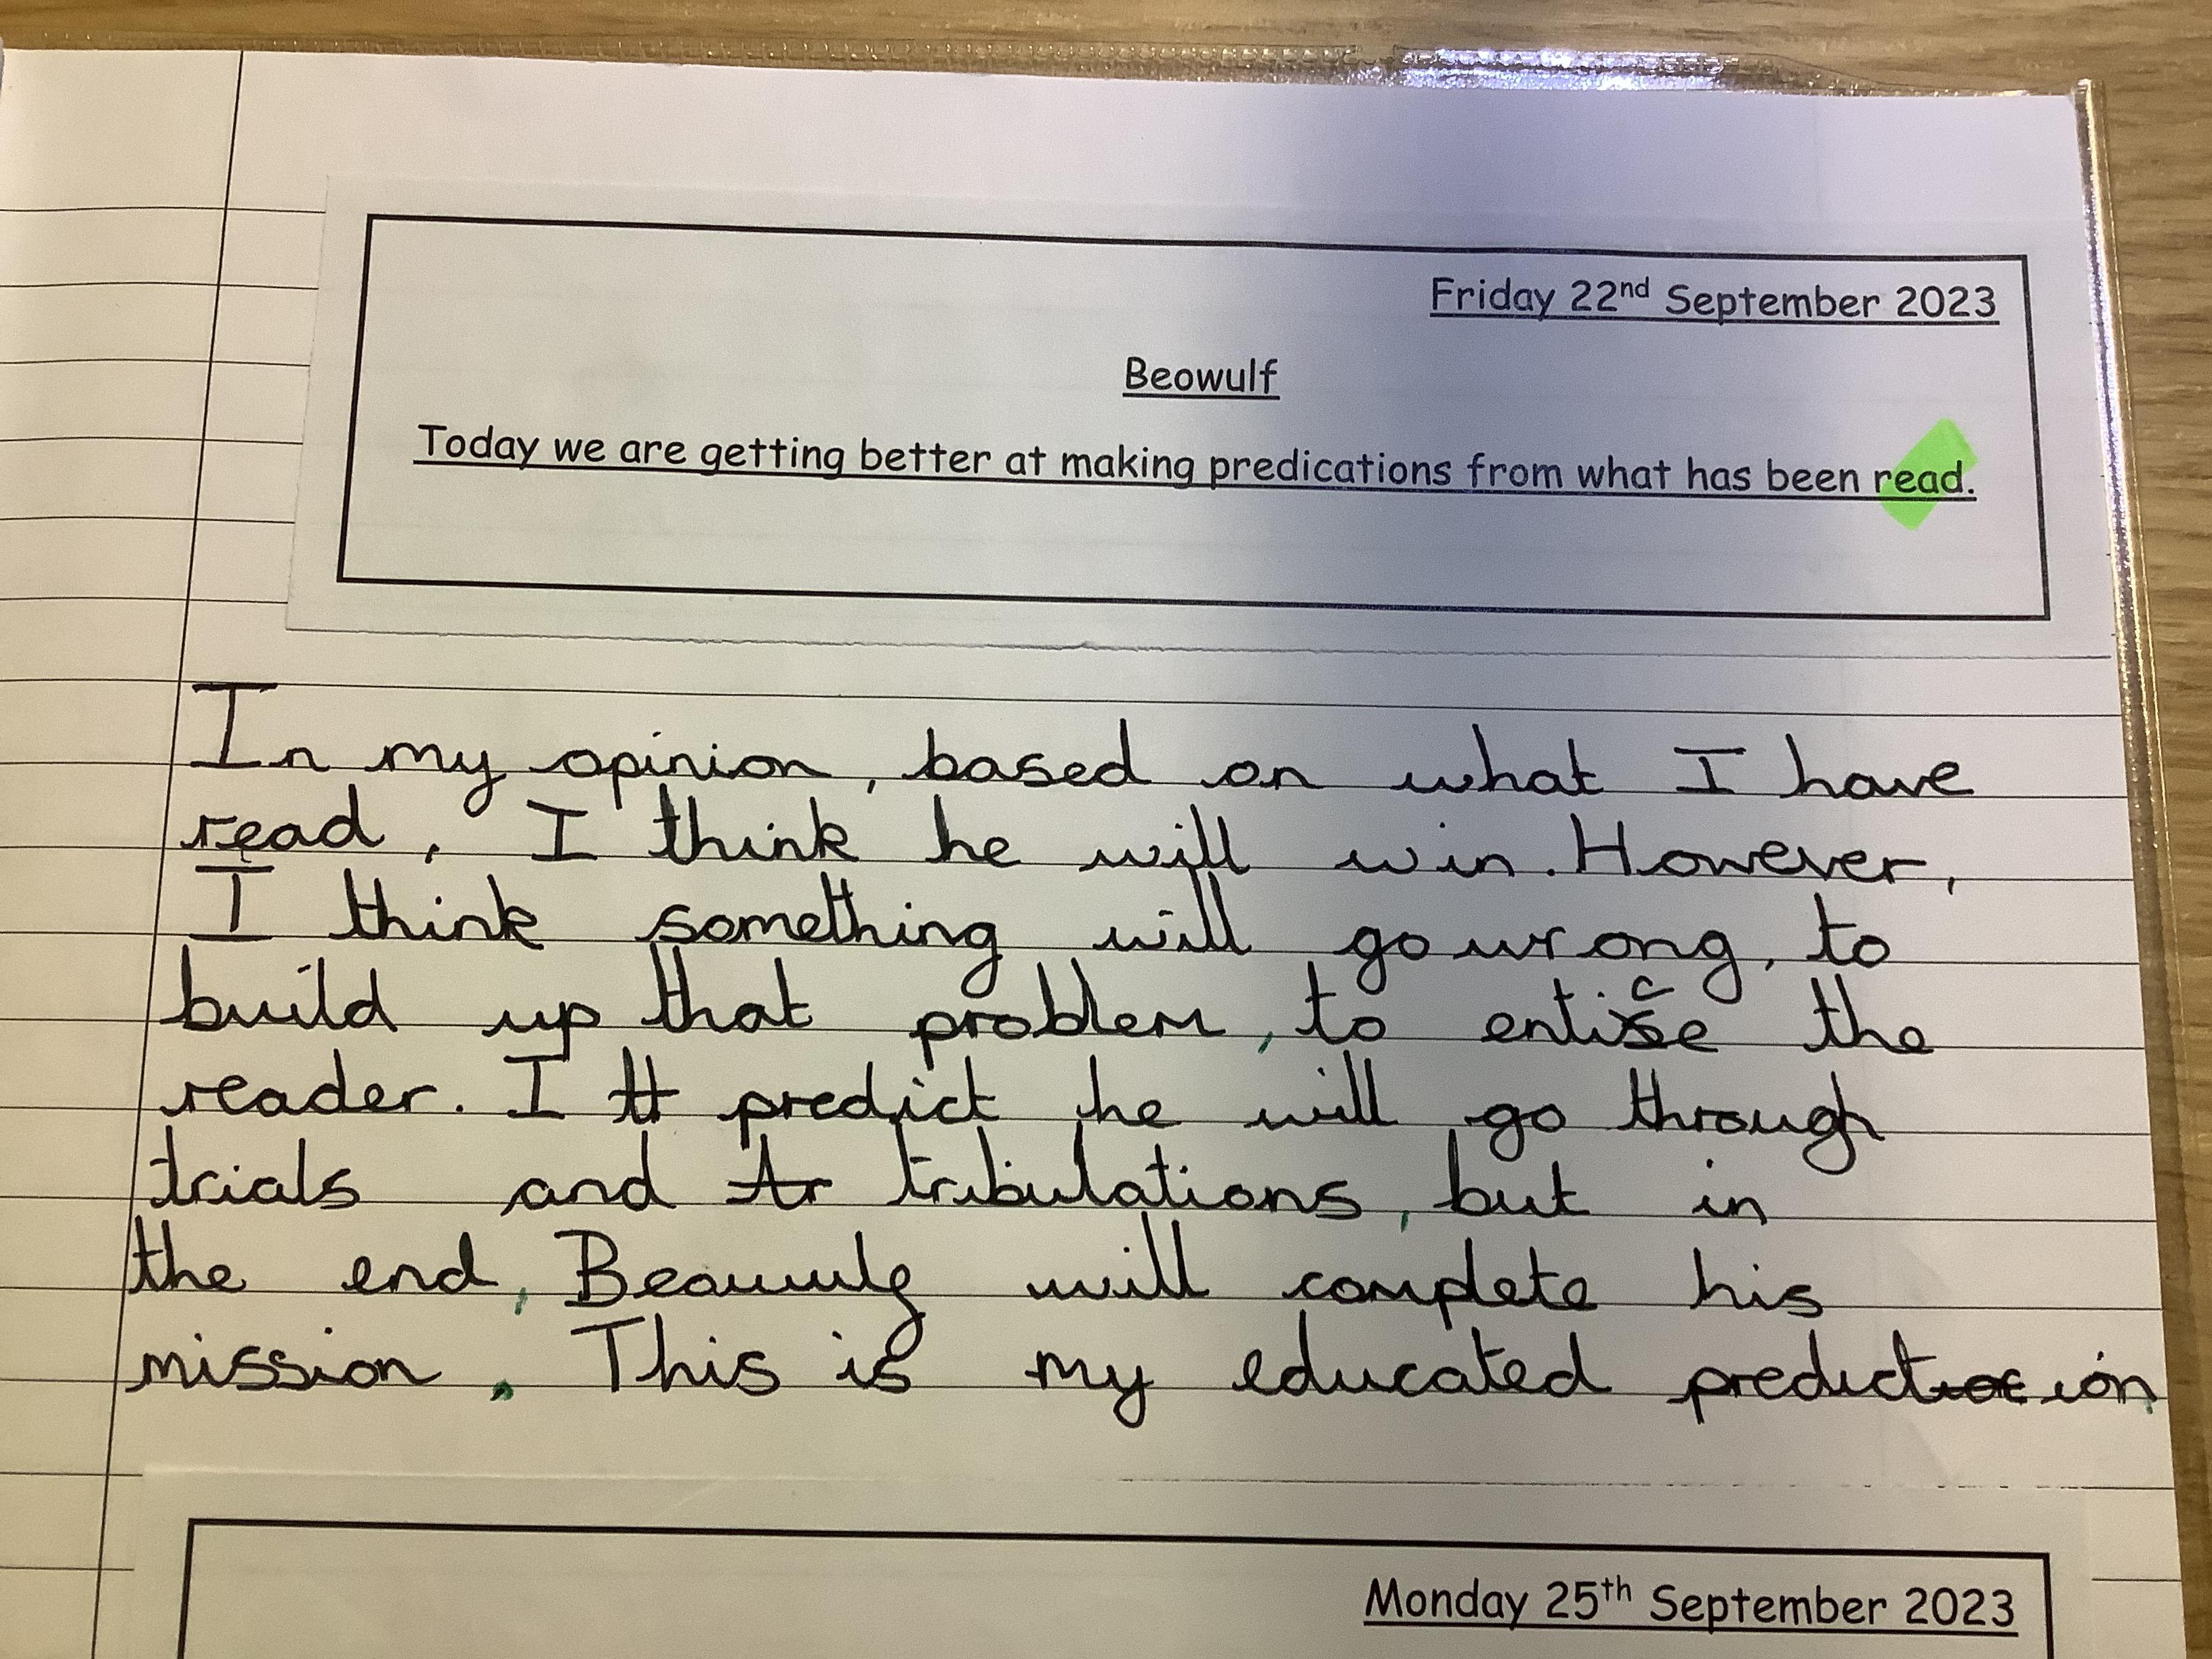 Friday 22nd September 2023
Beowulf
Today we are getting better at making predications from what has been read.
In my opinion, based on what I have
read, I think he will win. However,
I think something will go wrong, to
build up that problem, to entice the
reader. I tt predict he will go through
trials and tr tribulations, but in
the end, Beowulf will complete his
mission. This is my educated prediction.
Monday 25th September 2023